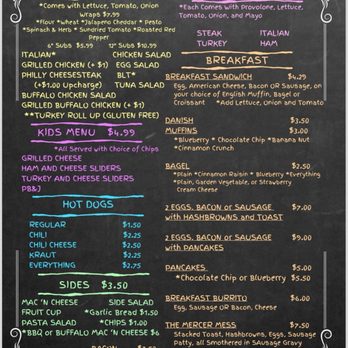 *Comes with Lettuce, Tomato, Onion
Wraps $7.99
*Flour *Wheat *Jalapeno Cheddar * Pesto
*Spinach & Herb * Sundried Tomato *Roasted Red
Pepper
6" Subs $5.99 12" Subs $10.99
ITALIAN* CHICKEN SALAD
GRILLED CHICKEN (+ $1) EGG SALAD
PHILLY CHEESESTEAK BLT*
(+$1.00 Upcharge) TUNA SALAD
BUFFALO CHICKEN SALAD
GRILLED BUFFALO CHICKEN (+ $1)
**TURKEY ROLL UP (GLUTEN FREE)
KIDS MENU $4.99
*All Served with Choice of Chips
GRILLED CHEESE
HAM AND CHEESE SLIDERS
TURKEY AND CHEESE SLIDERS
PB&J
HOT DOGS
REGULAR $1.50
CHILI $2.25
CHILI CHEESE $2.50
KRAUT $2.25
EVERYTHING $2.75
SIDES $3.50
MAC 'N CHEESE SIDE SALAD
FRUIT CUP *Garlic Bread $1.50
PASTA SALAD *CHIPS $1.00
*BBQ or BUFFALO MAC 'N CHEESE $6
BACON
*Each Comes with Provolone, Lettuce,
Tomato, Onion, and Mayo
STEAK ITALIAN
TURKEY HAM
BREAKFAST
BREAKFAST SANDWICH $4.29
Egg, American Cheese, Bacon OR Sausage, on
your choice of English Muffin, Bagel or
Croissant *Add Lettuce, Onion and Tomato
DANISH $3.50
MUFFINS $3.00
*Blueberry * Chocolate Chip *Banana Nut
*Cinnamon Crunch
BAGEL $2.50
*Plain *Cinnamon Raisin * Blueberry *Everything
*Plain, Garden Vegetable, or Strawberry
Cream Cheese
2 EGGS, BACON or SAUSAGE $7.00
with HASHBROWNS and TOAST
2 EGGS, BACON or SAUSAGE $9.00
with PANCAKES
PANCAKES $5.00
*Chocolate Chip or Blueberry $5.50
BREAKFAST BURRITO $6.00
Egg, Sausage OR Bacon, Cheese
THE MERCER MESS $7.50
Stacked Toast, Hashbrowns, Eggs, Sausage
Patty, all Smothered in Sausage Gravy